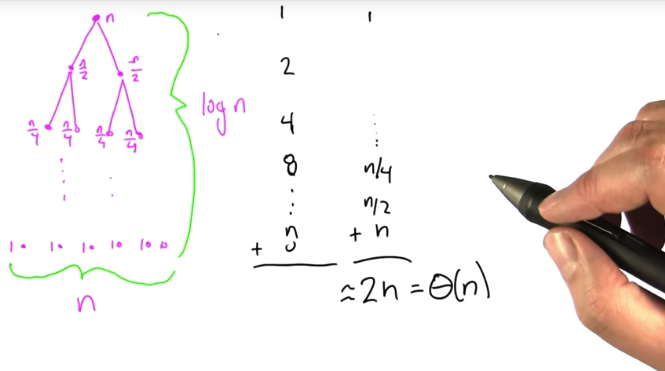 n
n/2 n/2
n/4 n/4 n/4 n/4
⋮
1 1 1 1 1 0
n
log n
1
2
4
8
⋮
n
+
1
⋮
n/4
n/2
+ n
≈2n = Θ(n)